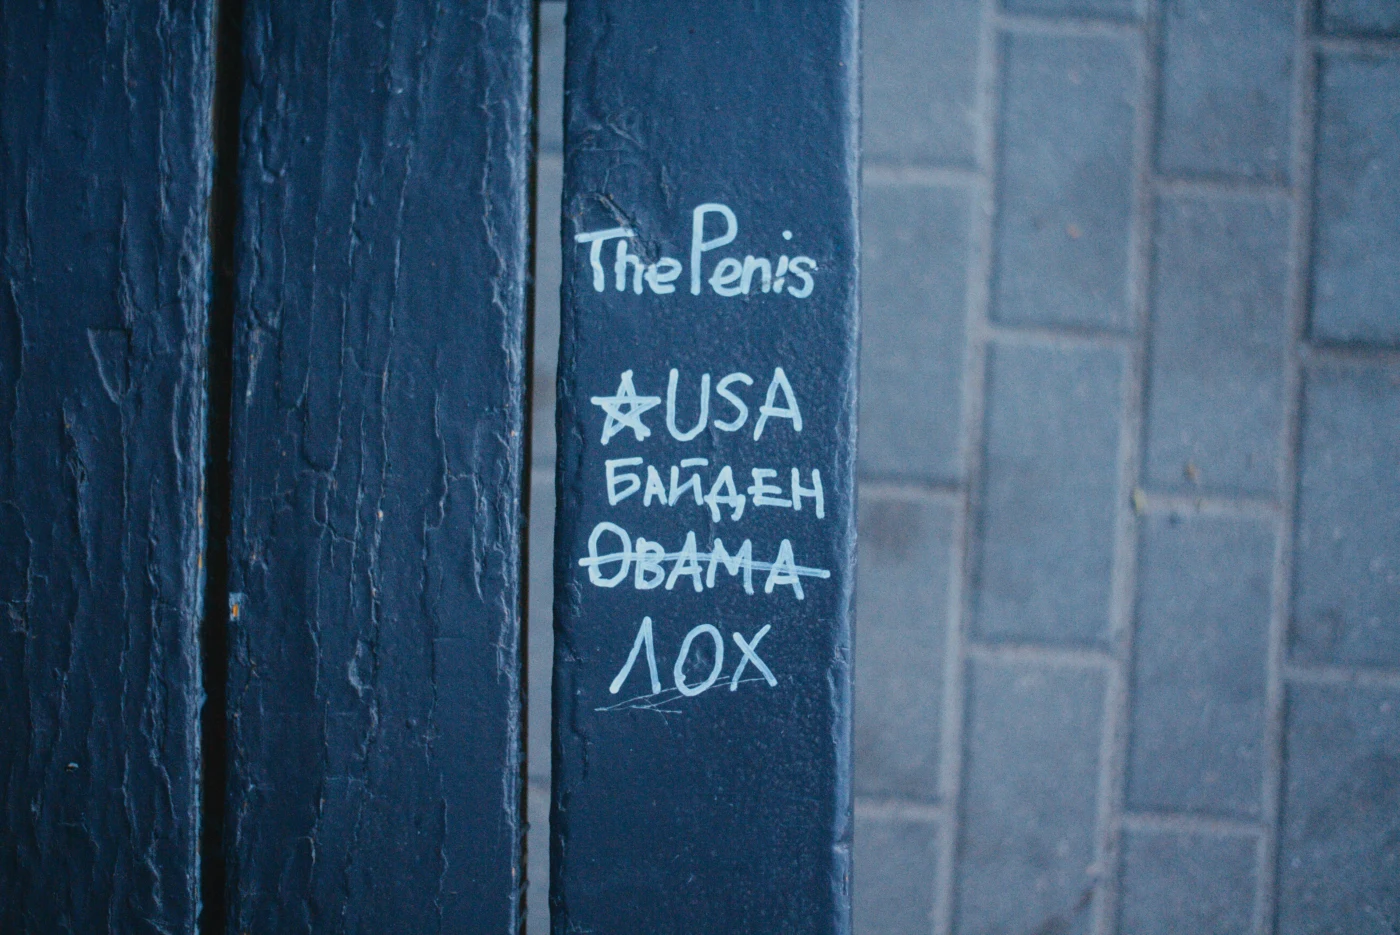 The Penis
☆USA
БАЙДЕН
OBAMA
ЛОХ